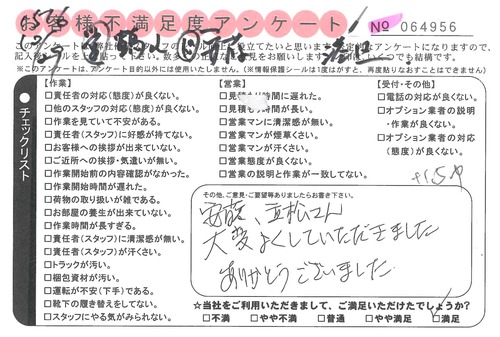 お客様不満足度アンケート
No 064956
※このアンケートは、アンケート目的以外には使用いたしません。(※情報保護シールは1度はがすと、再度貼りなおすことはできません)
チェックリスト
【作業】
□責任者の対応(態度)が良くない。
□他のスタッフの対応(態度)が良くない。
□作業を見ていて不安がある。
□責任者(スタッフ)に好感が持てない。
□お客様への挨拶が出来ていない。
□ご近所への挨拶・気遣いが無い。
□作業開始前の内容確認がなかった。
□作業開始時間が遅れた。
□荷物の取り扱いが雑である。
□お部屋の養生が出来ていない。
□作業時間が長すぎる。
□責任者(スタッフ)に清潔感が無い。
□責任者(スタッフ)が汗くさい。
□トラックが汚い。
□梱包資材が汚い。
□運転が不安(下手)である。
□靴下の履き替えをしてない。
□スタッフにやる気が見られない。
【営業】
□見積り時間に遅れた。
□見積り時間が長い。
□営業マンに清潔感が無い。
□営業マンが煙草くさい。
□営業マンが汗くさい。
□営業態度が良くない。
□営業の説明と作業が一致してない。
【受付・その他】
□電話の対応が良くない。
□オプション業者の説明
・作業が良くない。
□オプション業者の対応
(態度)が良くない。
その他、ご意見・ご要望等ありましたらお書き下さい。
安藤、立松さん
大変よくしていただきました
ありがとうございました
☆当社をご利用いただきまして、ご満足いただけたでしょうか?
□不満 □やや不満 □普通 □やや満足 □満足